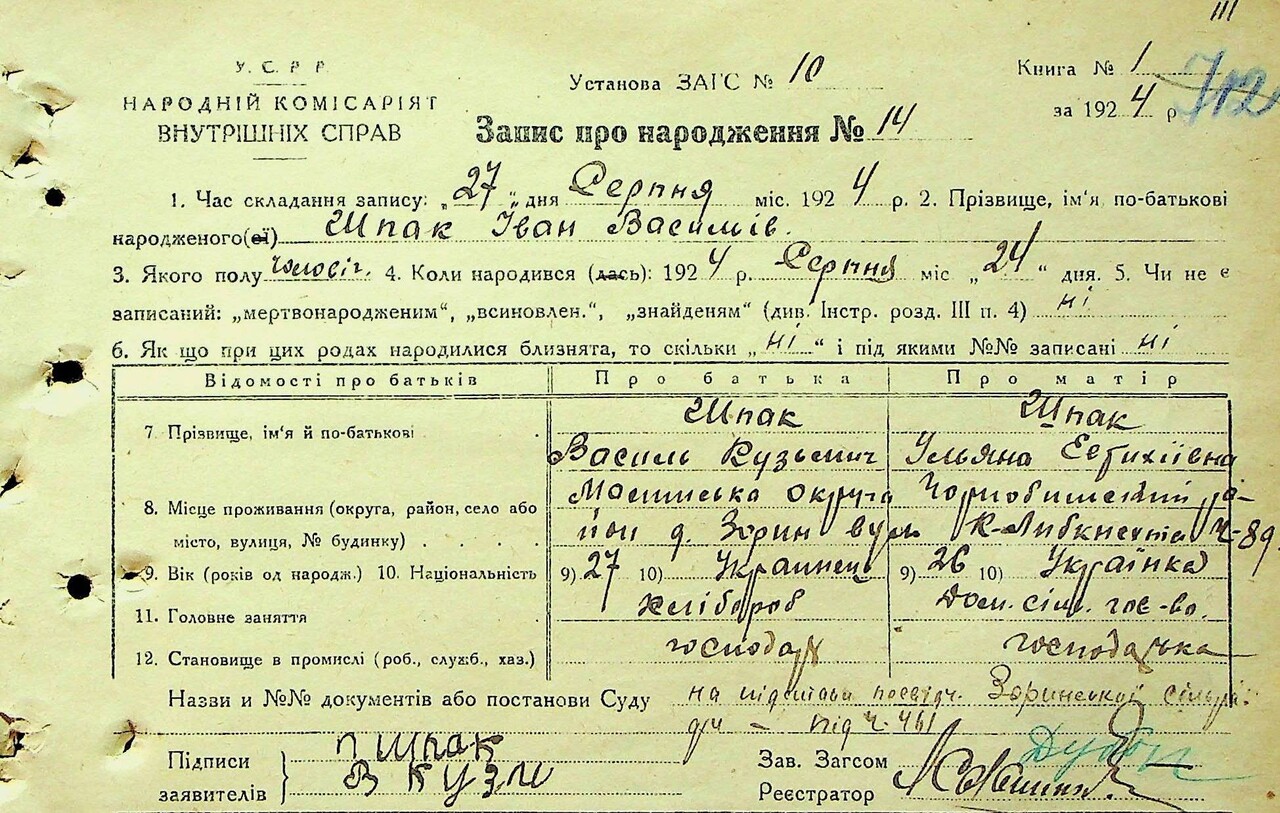 III
У. С. Р. Р.
НАРОДНІЙ КОМІСАРІЯТ
ВНУТРІШНІХ СПРАВ
Установа ЗАГС № 10
Книга № 1
за 1924 р
712
Запис про народження № 14
1. Час складання запису: „27“ дня Серпня міс. 1924 р. 2. Прізвище, ім'я, по-батькові
народженого(еї) Шпак Іван Василів.
3. Якого полу чоловіч. 4. Коли народився (лась): 1924 р. Серпня міс „24“ дня. 5. Чи не є
записаний: „мертвонародженим“, „всиновлен.“, „знайденям“ (див. Інстр. розд. III п. 4) ні
6. Як що при цих родах народилися близнята, то скільки „ні“ і під якими №№ записані ні
Відомості про батьків Про батька Про матір
7. Прізвище, ім'я й по-батькові Шпак Шпак
Василь Кузьмич Ульяна Евтихіївна
8. Місце проживання (округа, район, село або Малинська округа Чорнобильский ра-
місто, вулиця, № будинку) йон д. Зорин вул К-Либкнехта Ч-89.
9. Вік (років од народж.) 10. Національність 9) 27 10) Украинець 9) 26 10) Українка
11. Головне заняття Хлібороб Дом. сіл. гос-во.
12. Становище в промислі (роб., служб., хаз.) господар господарька
Назви и №№ документів або постанови Суду на підставі посвідч. Зоринської сільра-
ди – під ч. 461
Підписи п Шпак
заявителів В Кузм
Зав. Загсом
Реєстратор